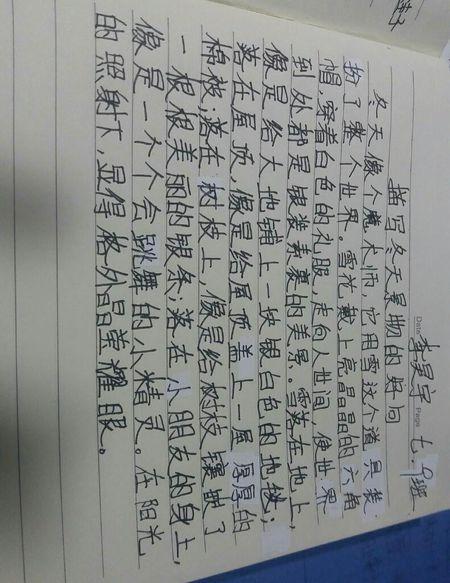 Date 李昊宇 Page 七.9班
描写冬天景物的
冬天像个魔术师,它用雪这个道具装
扮了整个世界。雪花戴上亮晶晶的六角
帽,穿着白色的礼服,走向人世间,使世界
到处都是银装素裹的美景。雪落在地上,
像是给大地铺上一块银白色的地毯;
落在屋顶,像是给屋顶盖上一层厚厚的
棉被;落在树枝上,像是给树枝镶嵌了
一根根美丽的银条;落在小朋友的身上,
像是一个个会跳舞的小精灵。在阳光
的照射下,显得格外晶莹耀眼。